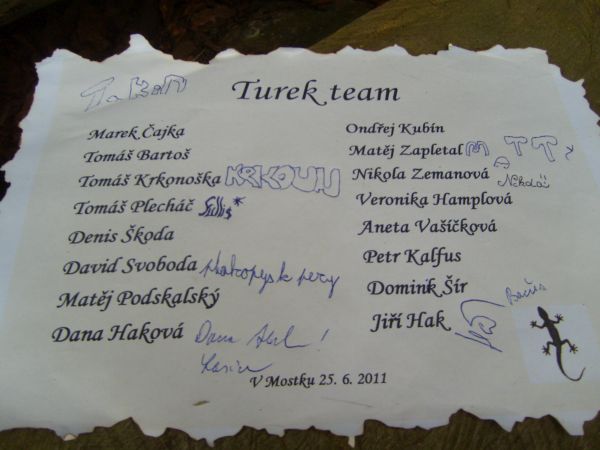 Turek team
Marek Čajka
Tomáš Bartoš
Tomáš Krkonoška
Tomáš Plecháč
Denis Škoda
David Svoboda
Matěj Podskalský
Dana Haková
Ondřej Kubín
Matěj Zapletal
Nikola Zemanová
Veronika Hamplová
Aneta Vašíčková
Petr Kalfus
Domink Šír
Jiří Hak
V Mostku 25. 6. 2011